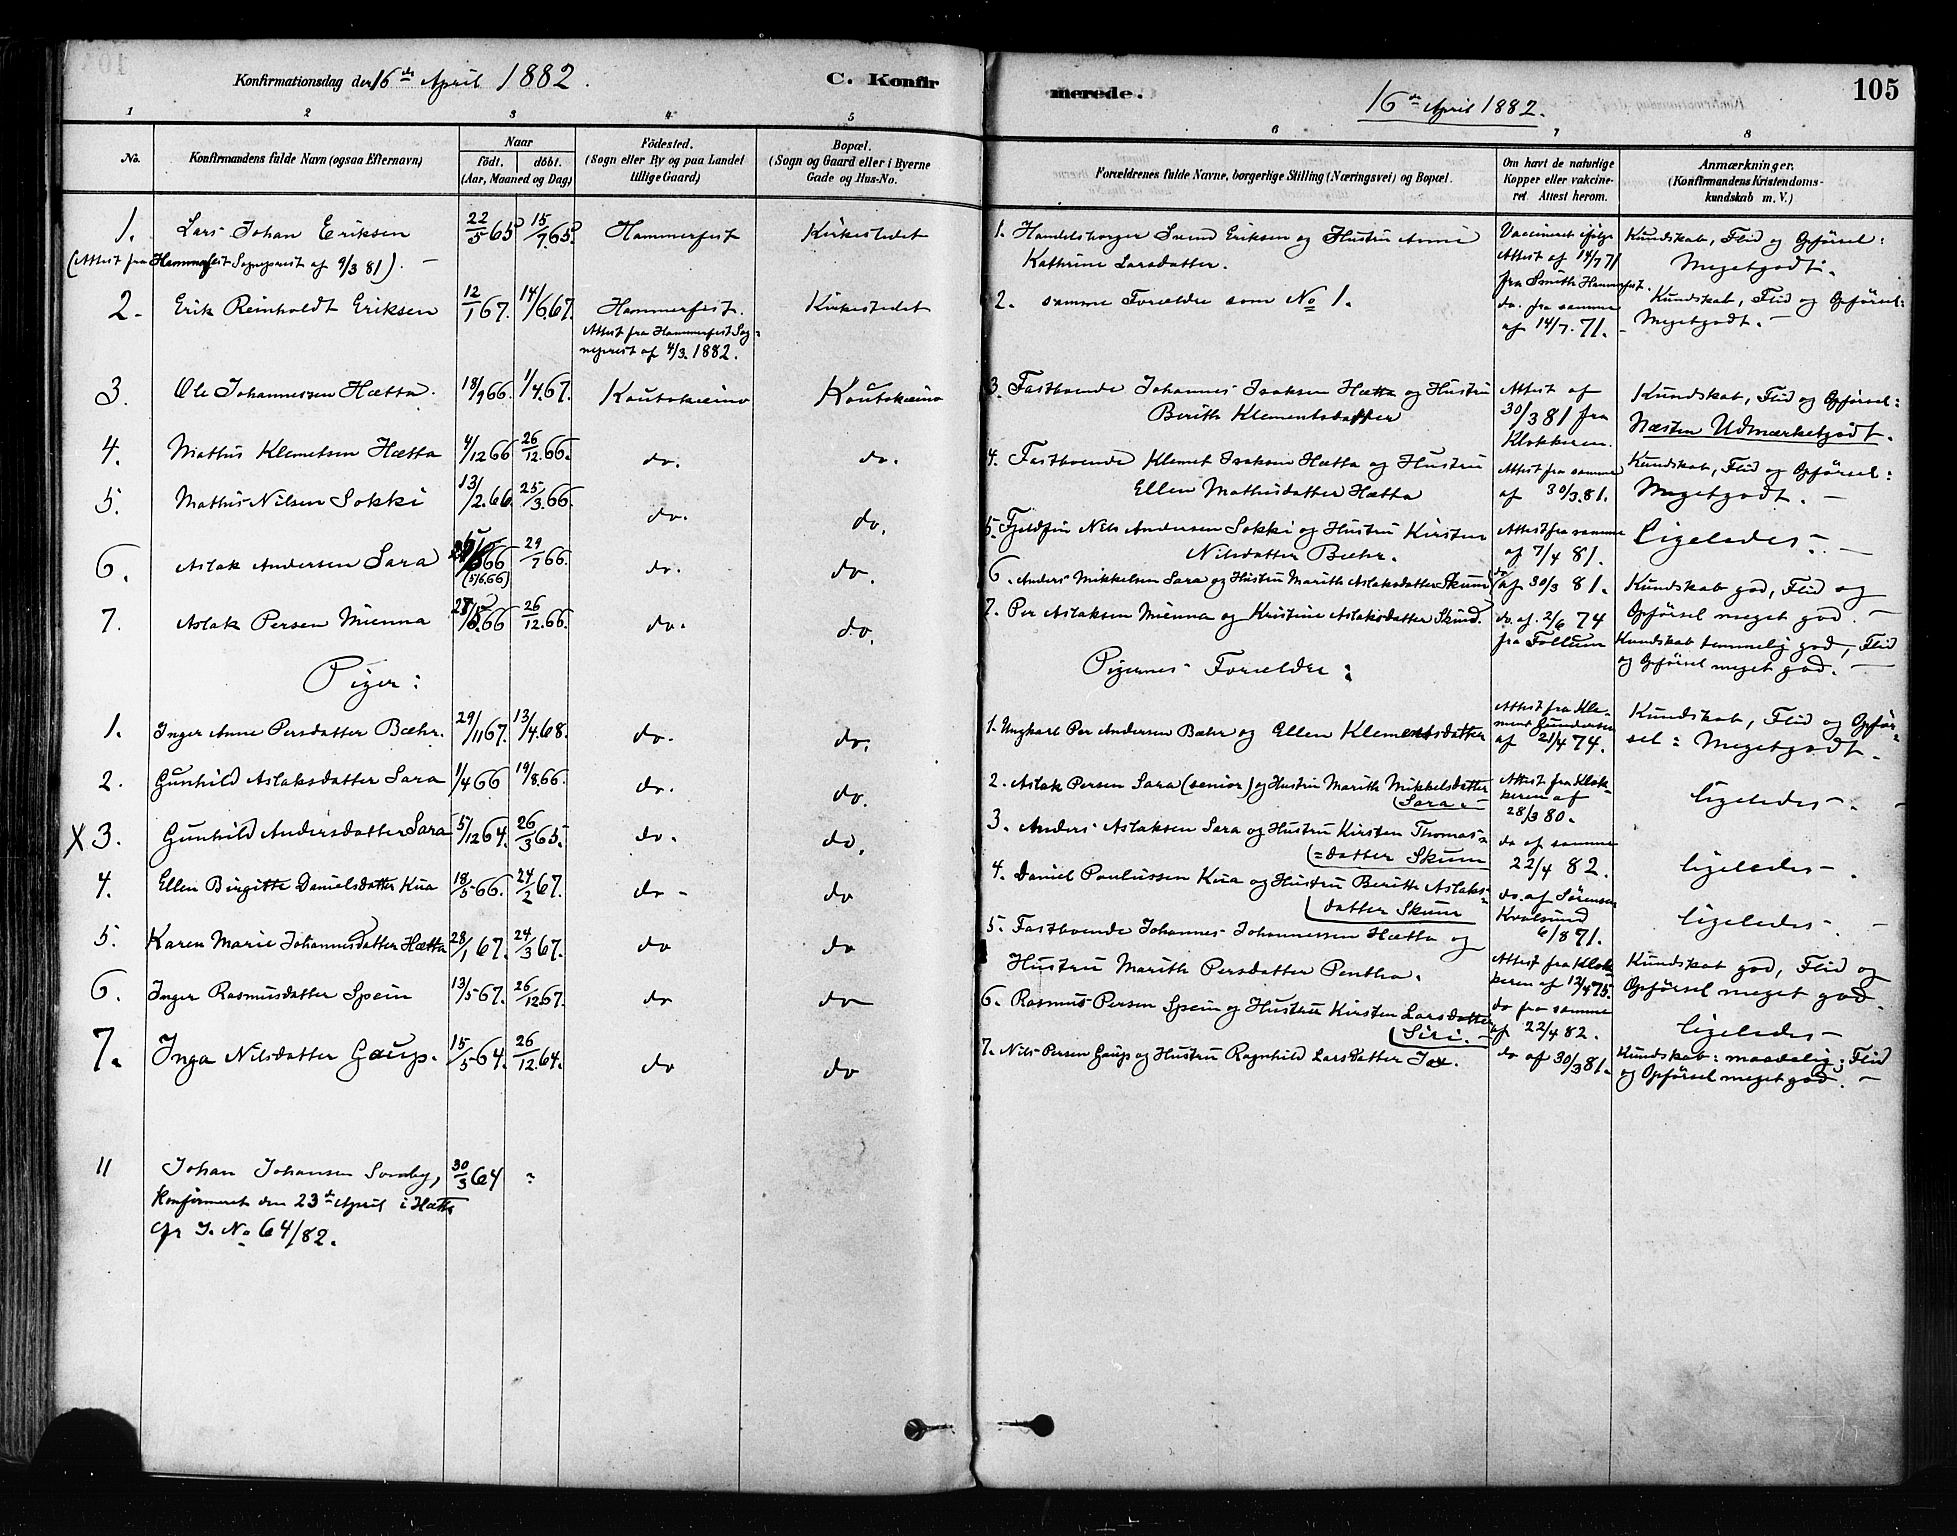 Konfirmationsdag den 16de April 1882.
C. Konfir
merede.
16de April 1882.
105
1 2 3 4 5 6 7 8
No.
Konfirmandens fulde Navn (ogsaa Efternavn)
Naar
födt. döbt.
(Aar, Maaned og Dag)
Födested.
(Sogn eller By og paa Landet
tillige Gaard)
Bopæl.
(Sogn og Gaard eller i Byerne
Gade og Hus-No.
Forældrenes fulde Navne, borgerlige Stilling (Næringsvei) og Bopæl.
Om havt de naturlige
Kopper eller vakcine-
ret. Attest herom.
Anmærkninger.
(Konfirmandens Kristendoms-
kundskab m. V.)
1. Lars Johan Eriksen 22/5 65 15/7 65 Hammerfest Kirkestedet
(Attest fra Hammerfest Sogneprest af 9/3 81). —
2. Erik Reinholdt Eriksen 12/1 67. 14/6 67. Hammerfest. Kirkestedet
Attest fra Hammerfest Sog-
neprest af 4/3. 1882.
3. Ole Johannessen Hætta. 18/9 66. 1/4 67. Koutokeino Koutokeino
4. Mathis Klemetsen Hætta 4/12 66 26/12. 66. do. do.
5. Mathis Nilsen Sokki 13/2. 66. 25/3. 66. do. do.
6. Aslak Andersen Sara 66 (5/6.66) 29/7 66. do. do.
7. Aslak Persen Mienna 28/5. 66 26/12. 66. do. do.
Piger:
1. Inger Anne Persdatter Bæhr. 29/11 67. 13/4. 68. do. do.
2. Gunhild Aslaksdatter Sara 1/4 66 19/8. 66. do. do.
X 3. Gunhild Andersdatter Sara 5/12 64. 26/3 65. do. do.
4. Ellen Birgitte Danielsdatter Kua 18/5 66. 24/2 67. do - do
5. Karen Marie Johannesdatter Hætta 28/1 67. 24/3 67. do do
6. Inger Rasmusdatter Spein 13/5 67. 26/12 67. do do
7. Inga Nilsdatter Gaup. 15/5 64. 26/12. 64. do do
11 Johan Johansen Somby, 30/3 64 ?
Konfirmeret den 23de April i Hætta
cfr J. No 64/82.
1. Handelsborger Svend Eriksen og Hustru Anne
Kathrine Larsdatter.
2. samme Forældre som No 1.
3. Fastboende Johannes Isaksen Hætta og Hustru
Berith Klementsdatter
4. Fastboende Klemet Isaksen Hætta og Hustru
Ellen Mathisdatter Hætta
5. Fjeldfin Nils Andersen Sokki og Hustru Kirsten
Nilsdatter Bæhr.
6. Anders Mikkelsen Sara og Hustru Marith Aslaksdatter Skum
7. Per Aslaksen Mienna og Kristine Aslaksdatter Skum.
Pigernes Forældre:
1. Ungkarl Per Andersen Bæhr og Ellen Klementsdatter
2. Aslak Persen Sara (senior) og Hustru Marith Mikkelsdatter
(Sara. —
3. Anders Aslaksen Sara og Hustru Kirsten Thomas-
(=datter Skum
4. Daniel Paulussen Kua og Hustru Berith Aslaks-
(datter Skum
5. Fastboende Johannes Johannessen Hætta og
Hustru Marith Persdatter Pentha.
6. Rasmus Persen Spein og Hustru Kirsten Larsdatter
(Siri. —
7. Nils Persen Gaup og Hustru Ragnhild Larsdatter
Vaccineret ifølge
Attest af 14/7 71
fra Smith Hammerfest.
do. fra samme
af 14/7. 71. -
Attest af
30/3 81 fra
Klokkeren.
Attest fra samme
af 30/3. 81.
Attest fra samme
af 7/4 81.
do af 30/3 81.
do. af. 2/6 74
fra Follum
Attest fra Kle-
ment Gundersen
af 21/4 74.
Attest fra Klok-
keren af
28/3 80.
do af samme
22/4 82.
do. af Sørensen
Kvalsund
6/8 71.
Attest fra Klok-
keren af 12/4 75.
do fra samme
af 22/4 82.
do af 30/3 81.
Kundskab, Flid og Opførsel:
Megetgodt.
Kundskab, Flid og Opførsel:
Megetgodt. —
Kundskab, Flid og Opførsel:
Næsten Udmærketgodt.
Kundskab, Flid og Opførsel:
Megetgodt. —
Ligeledes. —
Kundskab god, Flid og
Opførsel meget god. —
Kundskab temmelig god, Flid
og Opførsel meget god. —
Kundskab, Flid og Opfør-
sel: Megetgodt.
ligeledes —
ligeledes —
ligeledes —
Kundskab god, Flid og
Opførsel meget god.
ligeledes —
Kundskab: maadelig; Flid
og Opførsel meget god. —